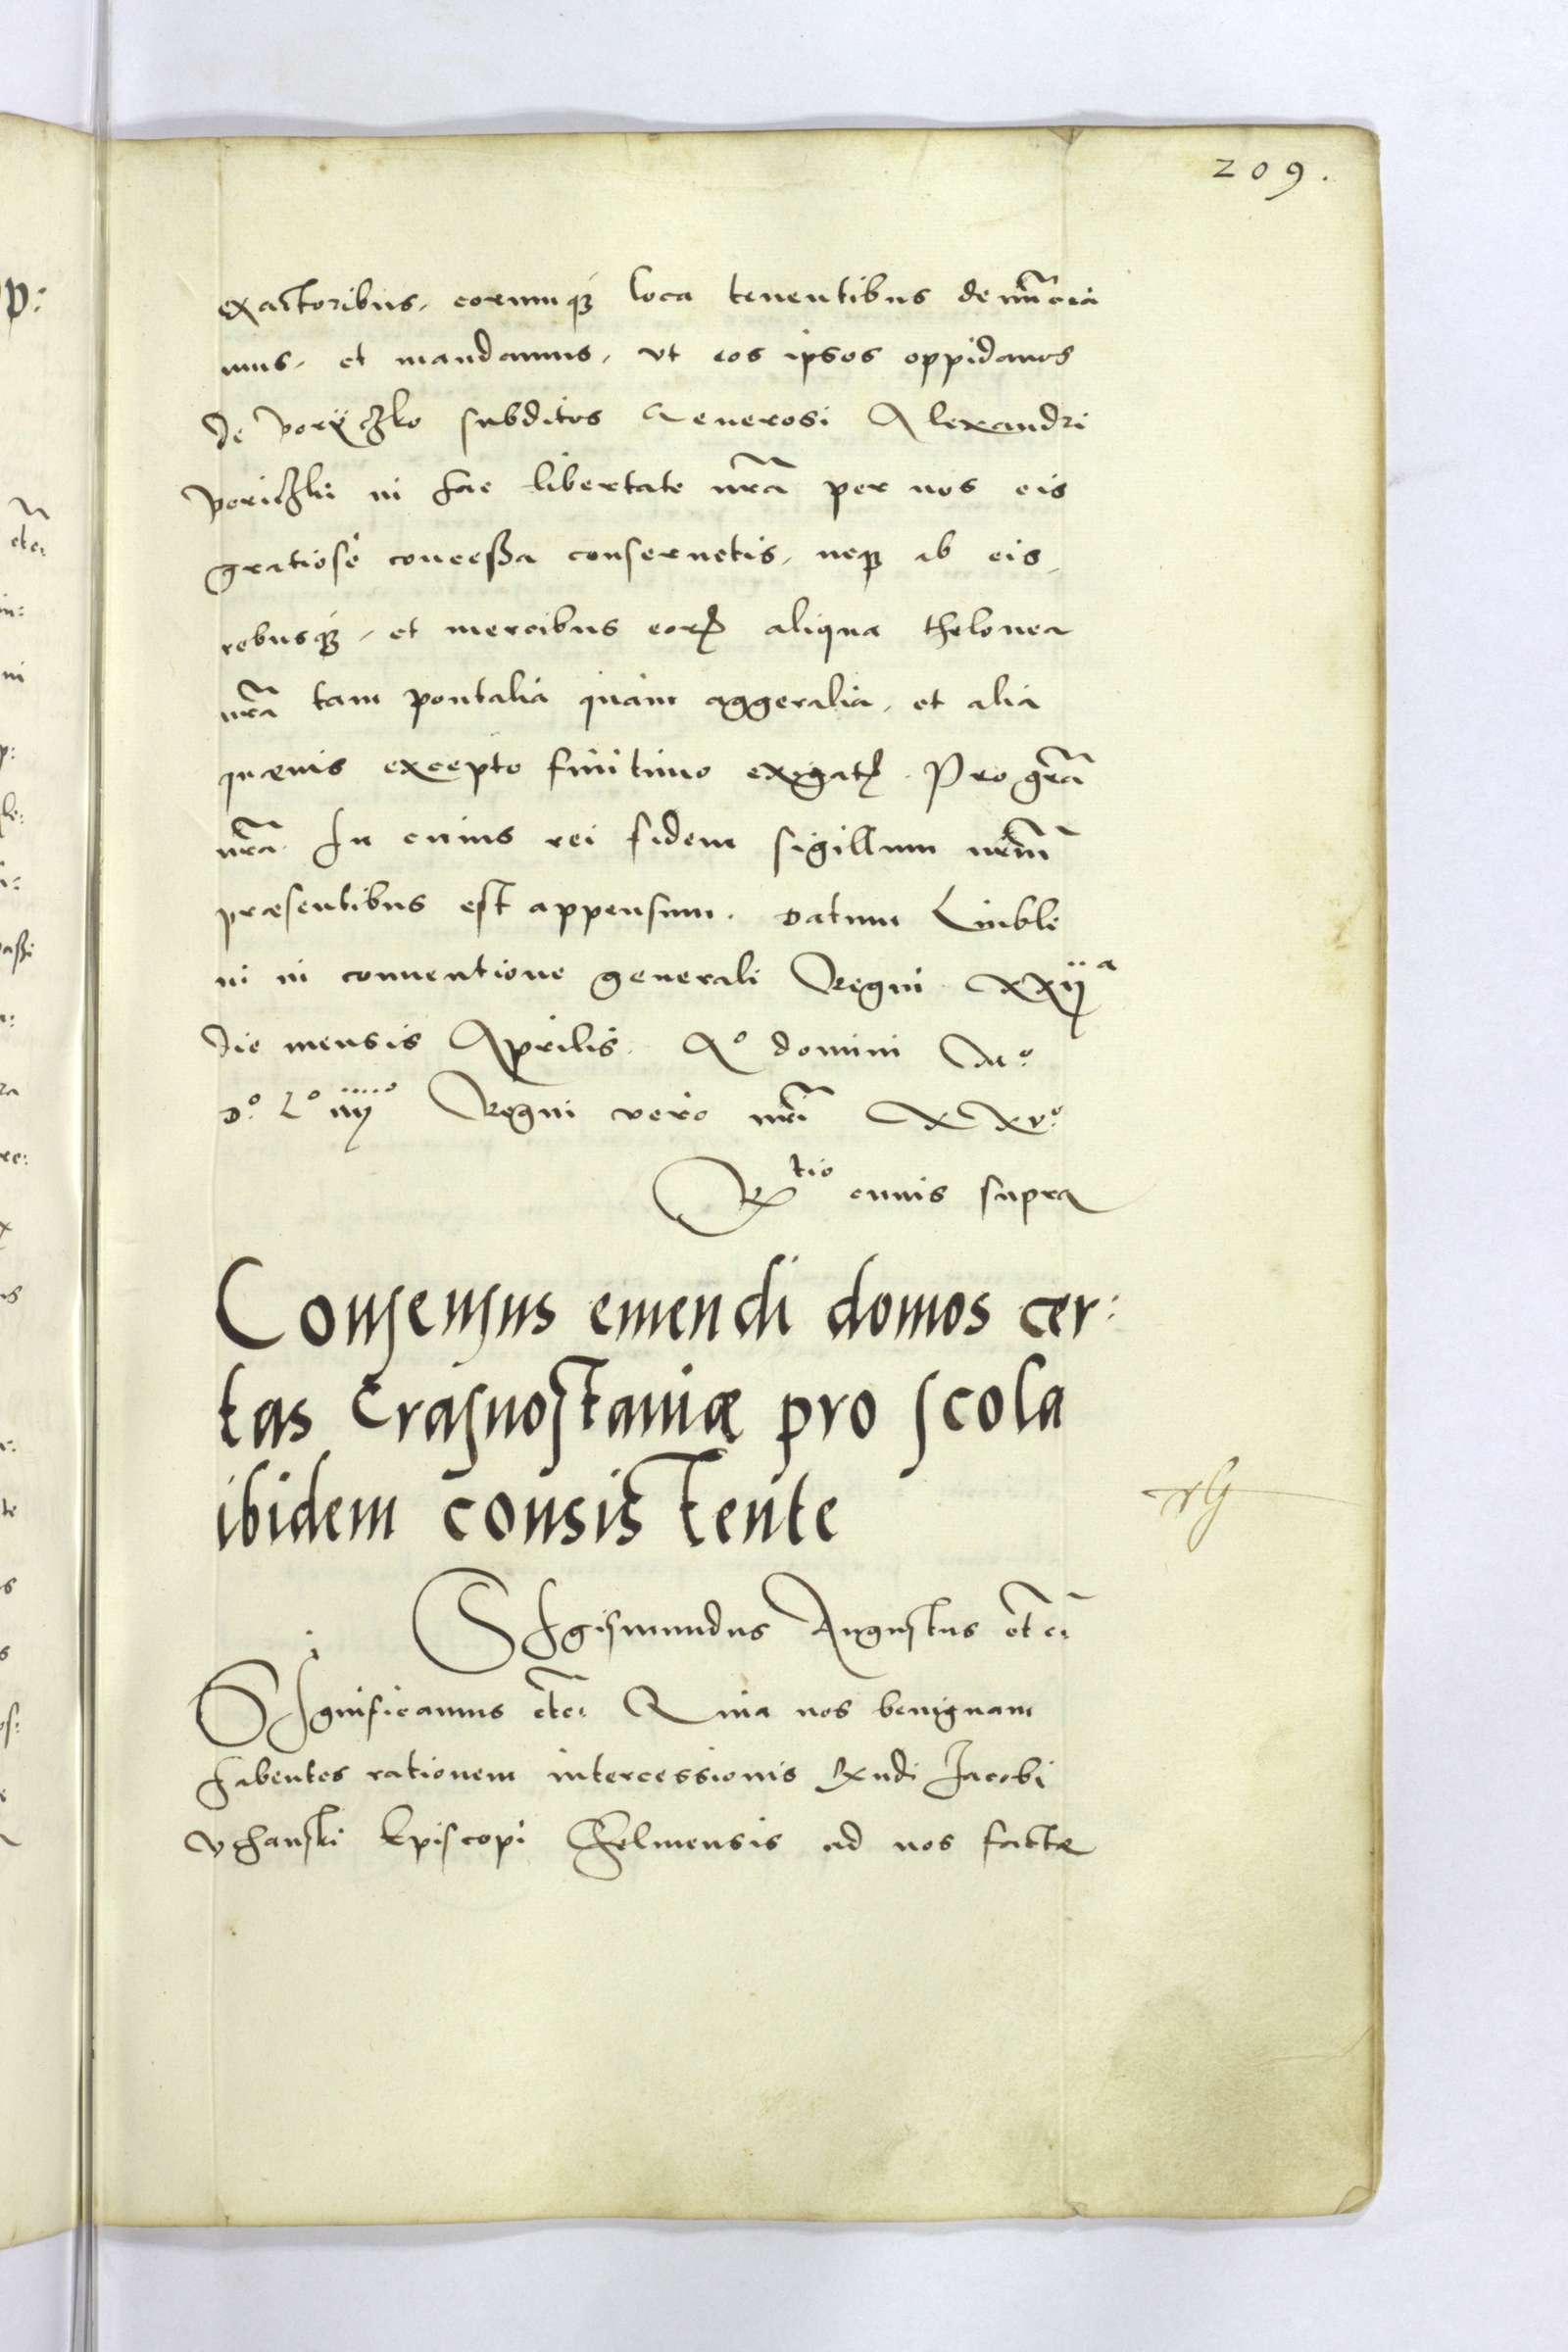 209.
exactoribus, eorumq; loca tenentibus denuncia
mus, et mandamus, vt eos ipsos oppidanos
de Poryczko subditos Generosi Alexandri
Poriczki in hac libertate nrã per nos eis
gratiosè concessa conseruetis, neq; ab eis,
rebusq;, et mercibus eorꝝ aliqua thelonea
nrã tam pontalia quàm aggeralia, et alia
quæuis excepto finitimo exigatꝭ. Pro grã
nrã. In cuius rei fidem sigillum nrũm
præsentibus est appensum. Datum Lubli
ni in conuentione generali Regni XXijª
die mensis Aprilis. Aº domini Mº.
Dº. Lº iiijº Regni vero nrĩ XXVº.
Rtio cuius supra
Consensus emendi domos cer:
tas Crasnostauiæ pro scola
ibidem consistente
SIgismundus Augustus etc.
SIgnificamus etc. Quia nos benignam
habentes rationem intercessionis Rndi Jacobi
Vchanski Episcopi Chelmensis ad nos factæ